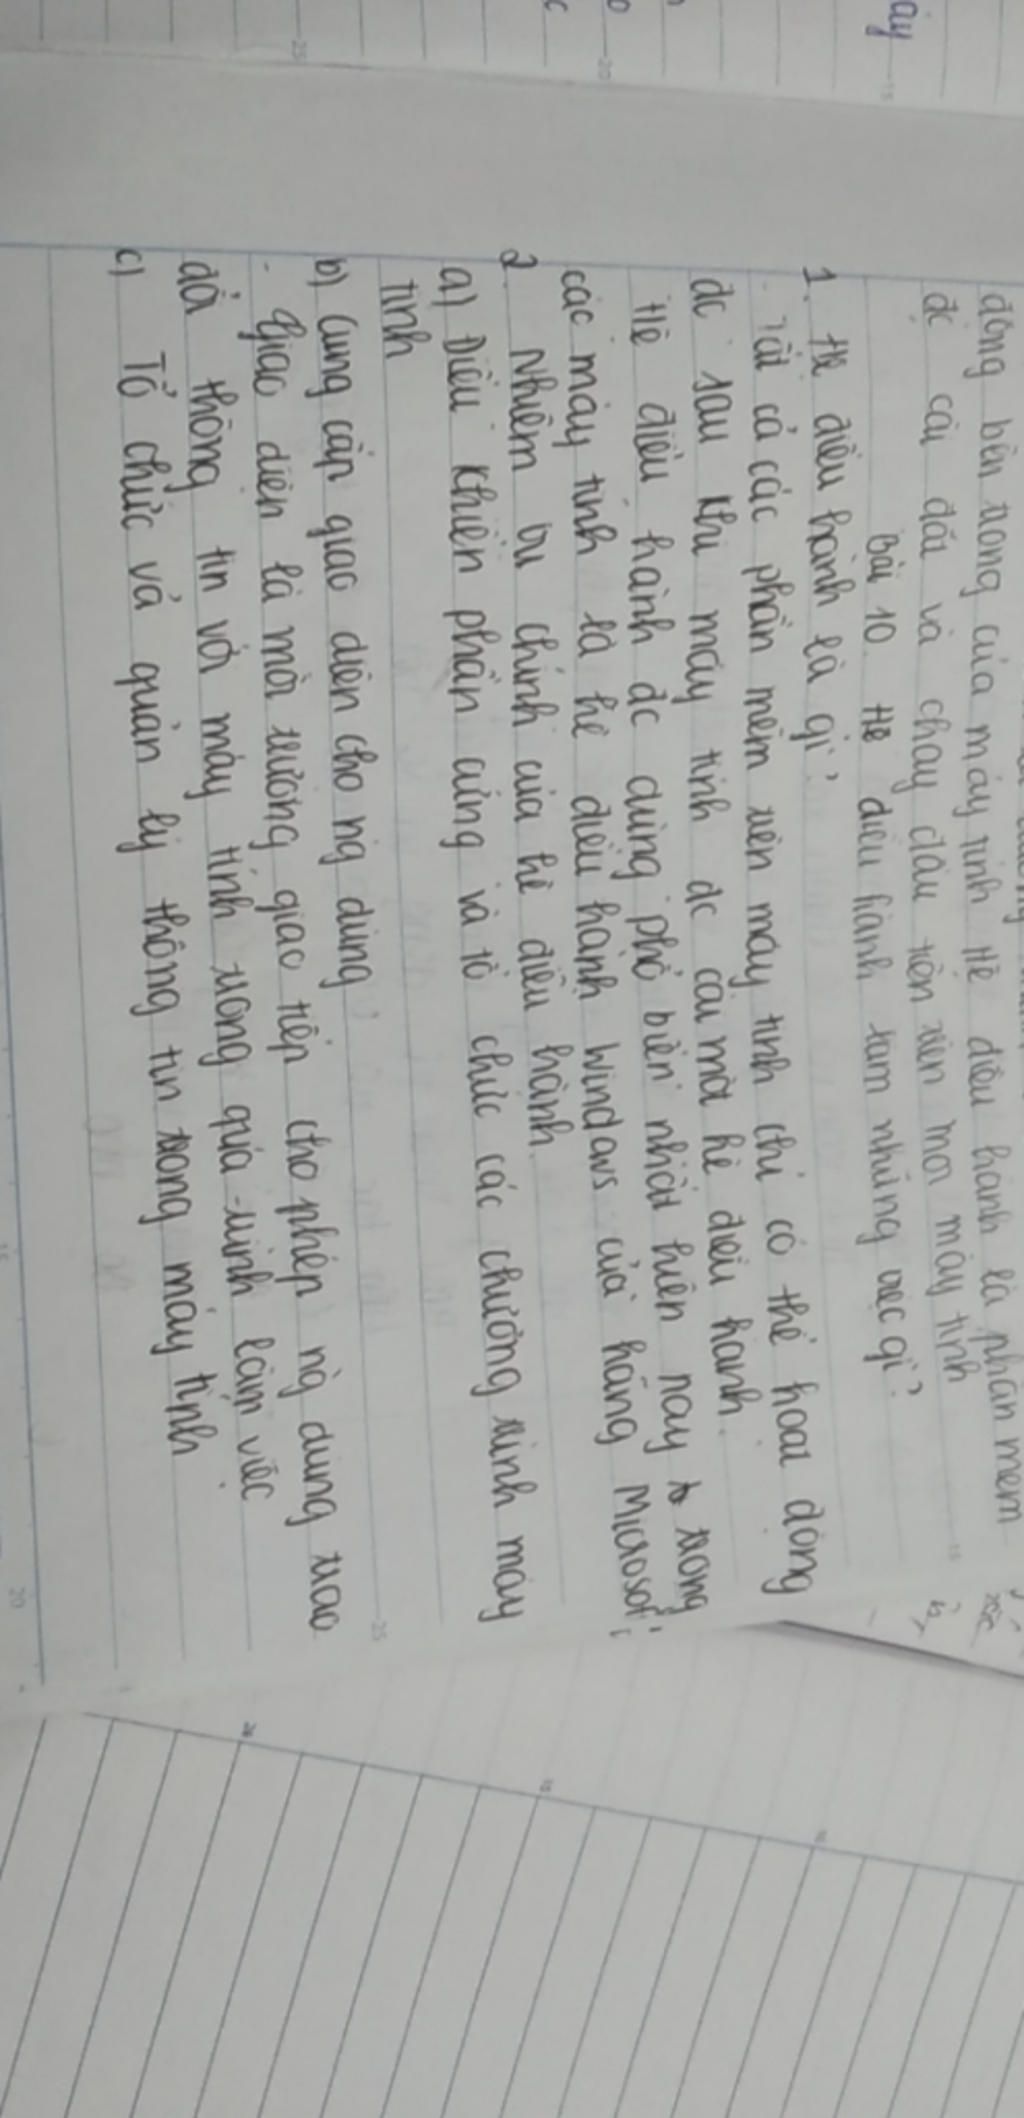 động bên trong của máy tính Hệ điều hành là phần mềm
đc cài đặt và chạy đầu tiên trên mỗi máy tính
Bài 10 Hệ điều hành làm những việc gì?
1. Hệ điều hành là gì?
- Tất cả các phần mềm trên máy tính chỉ có thể hoạt động
đc sau khi máy tính đc cài một hệ điều hành.
Hệ điều hành đc dùng phổ biến nhất hiện nay trong
các máy tính là hệ điều hành Windows của hãng Microsoft
2 Nhiệm vụ chính của hệ điều hành
a) Điều khiển phần cứng và tổ chức các chương trình máy
tính
b) Cung cấp giao diện cho ng dùng
- Giao diện là môi trường giao tiếp cho phép ng dùng trao
đổi thông tin với máy tính trong quá trình làm việc
c) Tổ chức và quản lý thông tin trong máy tính